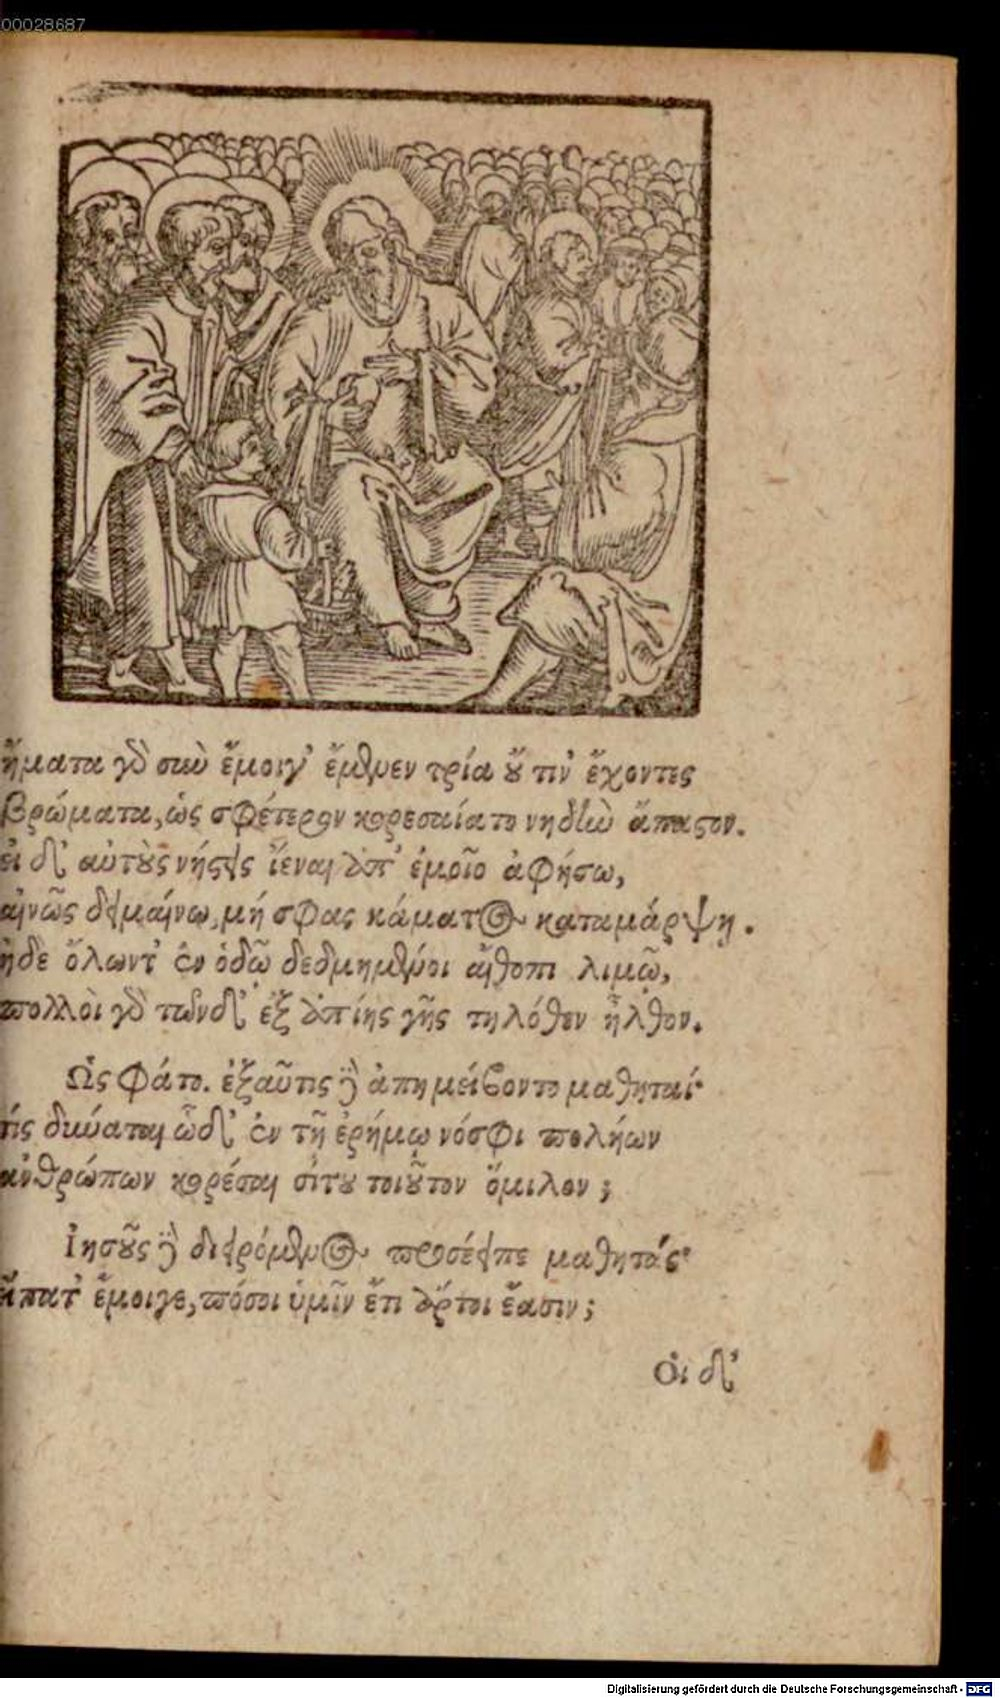 00028687
ἤματα γὸ σιωὶ ἔμοιγ' ἔμθμεν τρία ȣ̓ τιν' ἔχοντες
βρώματα, ὡς σφέτερον κορεσαίατο νηδιωὶ ἄπαςον.
εἰ δ' αὐτȣ̀ς νήςεις ἴεναι ἀπ' ἐμοῖο ἀφήσω,
αἰνῶς δειμαίνω, μή σφας κάματος καταμάρψη.
ἠδὲ ὄλωντ' ἐν ὁδῶ δεδμημένοι αἴθοπι λιμῶ,
πολλοὶ γὸ τῶνδ' ἐξ ἀπίης γῆς τηλόθεν ἦλθον.
Ὣς φάτο. ἐξαῦτις ἢ ἀπημείβοντο μαθηταί·
τίς δύναται ὧδ' ἐν τῆ ἐρήμω νόσφι πολήων
ἀνθρώπων κορέσαι σίτȣ τοιȣ͂τον ὅμιλον;
Ἰησȣ͂ς ἢ διειρόμενος προσέειπε μαθητάς·
εἴπατ' ἔμοιγε, πόσοι ὑμῖν ἔτι ἄρτοι ἔασιν;
Οἱ δ'
Digitalisierung gefördert durch die Deutsche Forschungsgemeinschaft - DFG